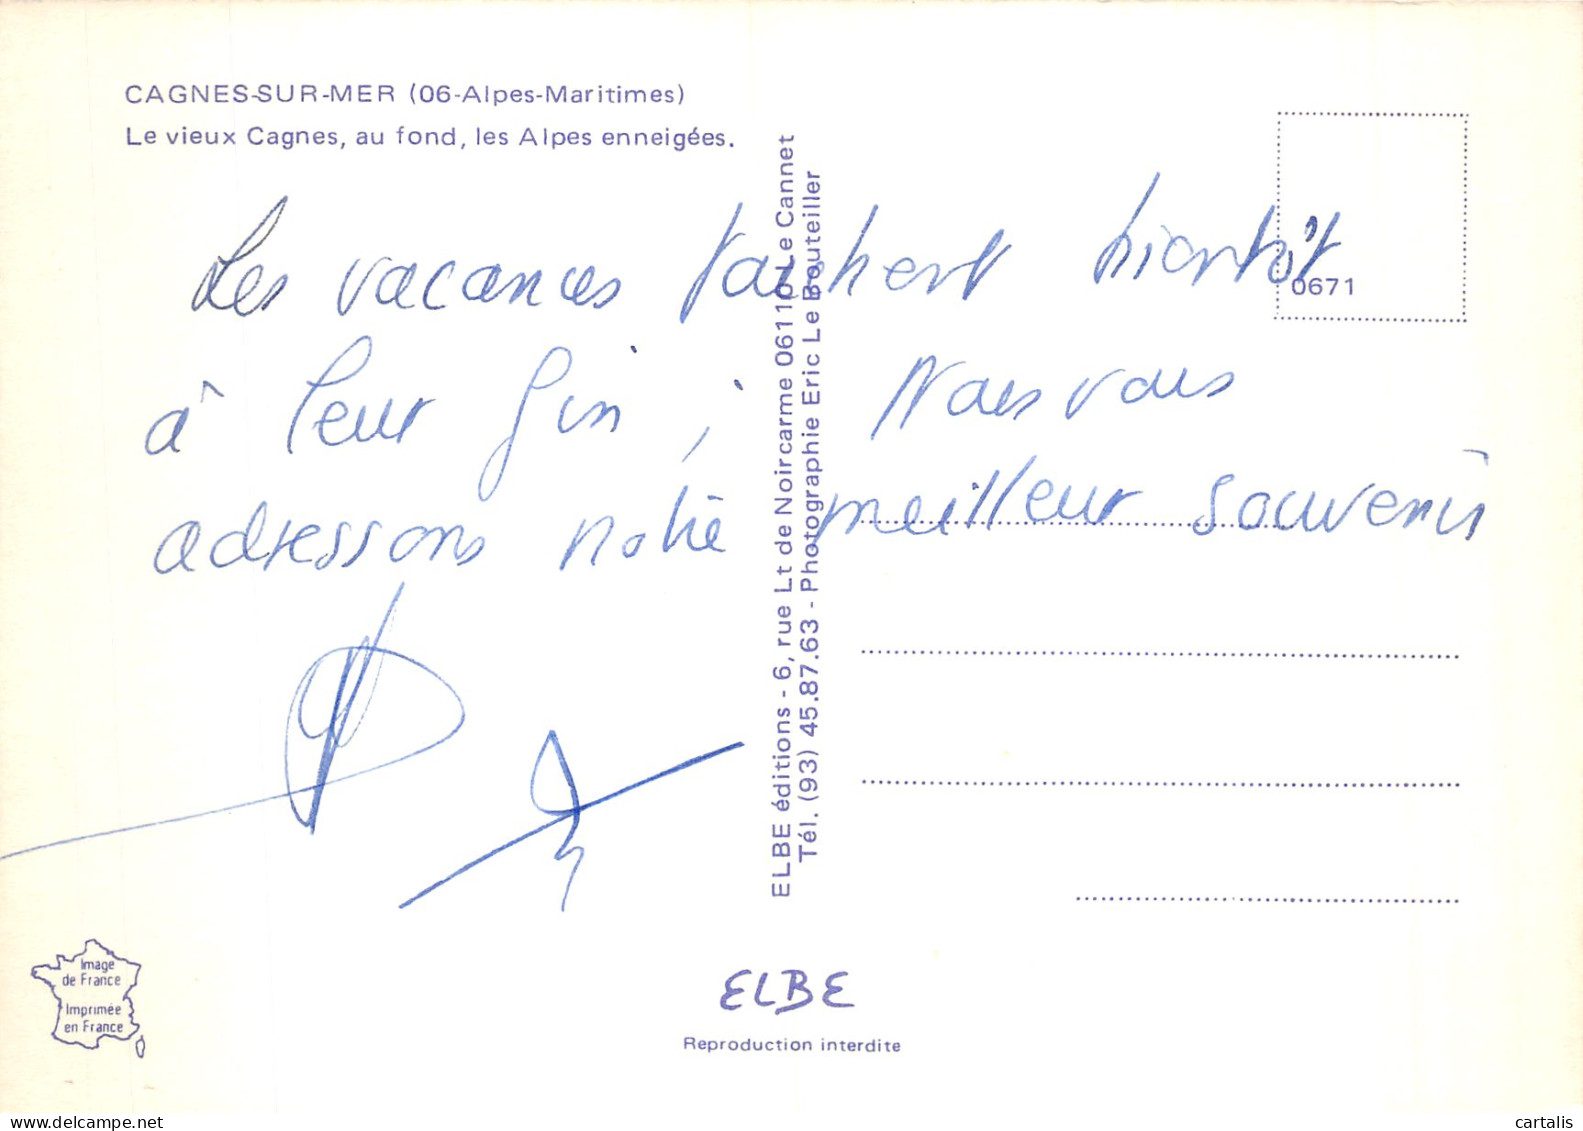 CAGNES-SUR-MER (06-Alpes-Maritimes)
Le vieux Cagnes, au fond, les Alpes enneigées.
Les vacances touchent bientôt
à leur fin ; Nous vous
adressons notre meilleur souvenir
ELBE éditions - 6, rue Lt de Noircarme 06110 Le Cannet
Tél. (93) 45.87.63 - Photographie Eric Le Bouteiller
0671
Image
de France
Imprimée
en France
ELBE
Reproduction interdite
www.delcampe.net
cartalis